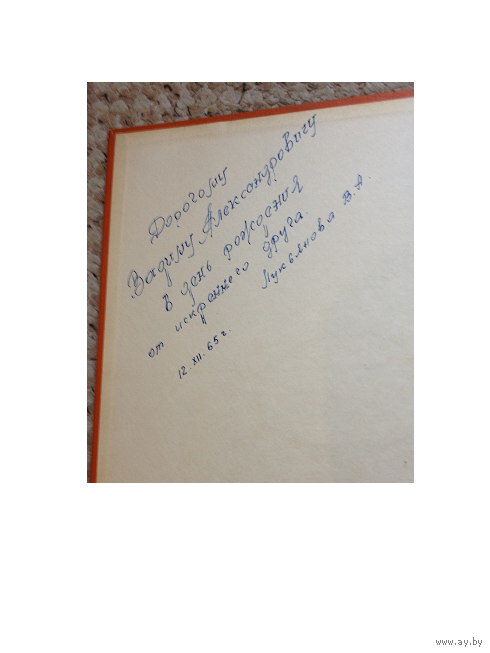 Дорогому
Вадиму Александровичу
в день рождения
от искреннего друга.
Лукьянова В.А.
12.XII.65г.
www.ay.by